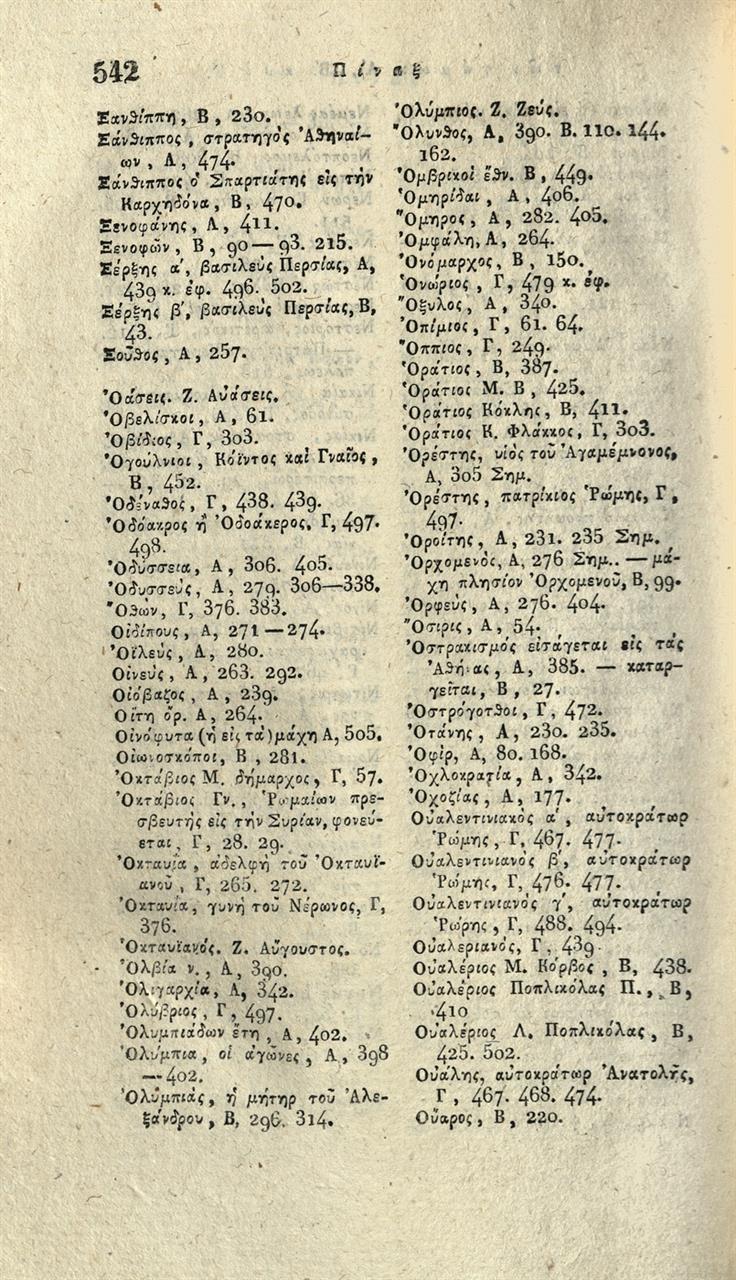 542
Πίναξ
Ξανθίππη, Β, 230.
Ξάνθιππος, στρατηγὸς Ἀθηναί-
ων, Α, 474.
Ξάνθιππος ὁ Σπαρτιάτης εἰς τὴν
Καρχηδόνα, Β, 470.
Ξενοφάνης, Α, 411.
Ξενοφῶν, Β, 90—93. 215.
Ξέρξης α΄, βασιλεὺς Περσίας, Α,
439 κ. ἐφ. 496. 502.
Ξέρξης β΄, βασιλεὺς Περσίας, Β,
43.
Ξοῦθος, Α, 257.
Ὀάσεις. Ζ. Αὐάσεις.
Ὀβελίσκοι, Α, 61.
Ὀβίδιος, Γ, 303.
Ὀγούλνιοι, Κόϊντος καὶ Γναῖος,
Β, 452.
Ὀδέναθος, Γ, 438. 439.
Ὀδόακρος ἢ Ὀδοάκερος, Γ, 497.
498.
Ὀδύσσεια, Α, 306. 405.
Ὀδυσσεὺς, Α, 279. 306—338.
Ὄθων, Γ, 376. 383.
Οἰδίπους, Α, 271—274.
Ὀϊλεὺς, Α, 280.
Οἰνεὺς, Α, 263. 292.
Οἰόβαζος, Α, 239.
Οἴτη ὄρ. Α, 264.
Οἰνόφυτα (ἡ εἰς τὰ) μάχη Α, 505.
Οἰωνοσκόποι, Β, 281.
Ὀκτάβιος Μ. δήμαρχος, Γ, 57.
Ὀκτάβιος Γν., Ῥωμαίων πρε-
σβευτὴς εἰς τὴν Συρίαν, φονεύ-
εται, Γ, 28. 29.
Ὀκταυΐα, ἀδελφὴ τοῦ Ὀκταυϊ-
ανοῦ, Γ, 265. 272.
Ὀκταυΐα, γυνὴ τοῦ Νέρωνος, Γ,
376.
Ὀκταυϊανός. Ζ. Αὔγουστος.
Ὀλβία ν., Α, 390.
Ὀλιγαρχία, Α, 342.
Ὀλύβριος, Γ, 497.
Ὀλυμπιάδων ἔτη, Α, 402.
Ὀλύμπια, οἱ ἀγῶνες, Α, 398
—402.
Ὀλυμπιὰς, ἡ μήτηρ τοῦ Ἀλε-
ξάνδρου, Β, 296. 314.
Ὀλύμπιος. Ζ. Ζεύς.
Ὄλυνθος, Α, 390. Β. 110. 144.
162.
Ὀμβρικοὶ ἔθν. Β, 449.
Ὁμηρίδαι, Α, 406.
Ὅμηρος, Α, 282. 405.
Ὀμφάλη, Α, 264.
Ὀνόμαρχος, Β, 150.
Ὁνώριος, Γ, 479 κ. ἐφ.
Ὄξυλος, Α, 340.
Ὀπίμιος, Γ, 61. 64.
Ὄππιος, Γ, 249.
Ὁράτιος, Β, 387.
Ὁράτιος Μ. Β, 425.
Ὁράτιος Κόκλης, Β, 411.
Ὁράτιος Κ. Φλάκκος, Γ, 303.
Ὀρέστης, υἱὸς τοῦ Ἀγαμέμνονος,
Α, 305 Σημ.
Ὀρέστης, πατρίκιος Ῥώμης, Γ,
497.
Ὀροίτης, Α, 231. 235 Σημ.
Ὀρχομενὸς, Α, 276 Σημ.. — μά-
χη πλησίον Ὀρχομενοῦ, Β, 99.
Ὀρφεὺς, Α, 276. 404.
Ὄσιρις, Α, 54.
Ὀστρακισμὸς εἰσάγεται εἰς τὰς
Ἀθήνας, Α, 385. — καταρ-
γεῖται, Β, 27.
Ὀστρόγοτθοι, Γ, 472.
Ὀτάνης, Α, 230. 235.
Ὀφὶρ, Α, 80. 168.
Ὀχλοκρατία, Α, 342.
Ὀχοζίας, Α, 177.
Οὐαλεντινιακὸς α΄, αὐτοκράτωρ
Ῥώμης, Γ, 467. 477.
Οὐαλεντινιανὸς β΄, αὐτοκράτωρ
Ῥώμης, Γ, 476. 477.
Οὐαλεντινιανὸς γ΄, αὐτοκράτωρ
Ῥώρης, Γ, 488. 494.
Οὐαλεριανὸς, Γ, 439.
Οὐαλέριος Μ. Κόρβος, Β, 438.
Οὐαλέριος Ποπλικόλας Π., Β,
410
Οὐαλέριος Λ. Ποπλικόλας, Β,
425. 502.
Οὐάλης, αὐτοκράτωρ Ἀνατολῆς,
Γ, 467. 468. 474.
Οὔαρος, Β, 220.